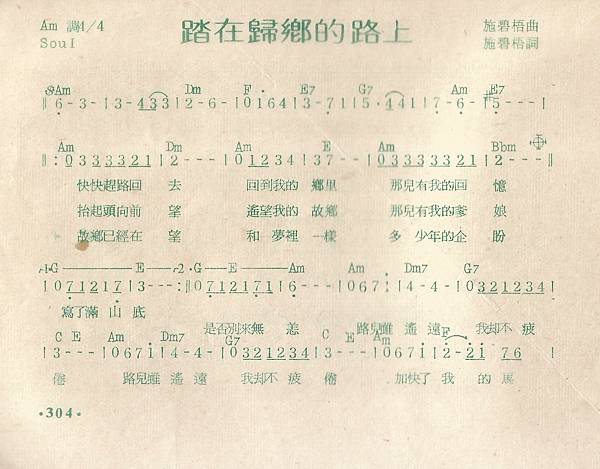 Am 調4/4
Soul
踏在歸鄉的路上
施碧梧曲
施碧梧詞
Am Dm F E7 G7 Am E7
6-3-|3-433|2-6-|0164|3-71|5·441|7-6-|5---|
Am Dm Am E Am Bbm
0333321|2---|01234|37---|03333321|2---|
快快趕路回 去 回到我的 鄉里 那兒有我的回 憶
抬起頭向前 望 遙望我的 故鄉 那兒有我的爹 娘
故鄉已經在 望 和 夢裡 一樣 多 少年的企 盼
1·G E 2·G E Am Am Dm7 G7
071217|3---|071217|6---|6---|067|4---|0321234|
寫了滿 山 底
是否別來無 恙 路兒雖 遙 遠 我却不 疲
C E Am Dm7 G7 C E Am F
3---|0671|4---|0321234|3---|0671|2-21 76|
倦 路兒雖 遙 遠 我却不 疲 倦 加快了 我 的
·304·